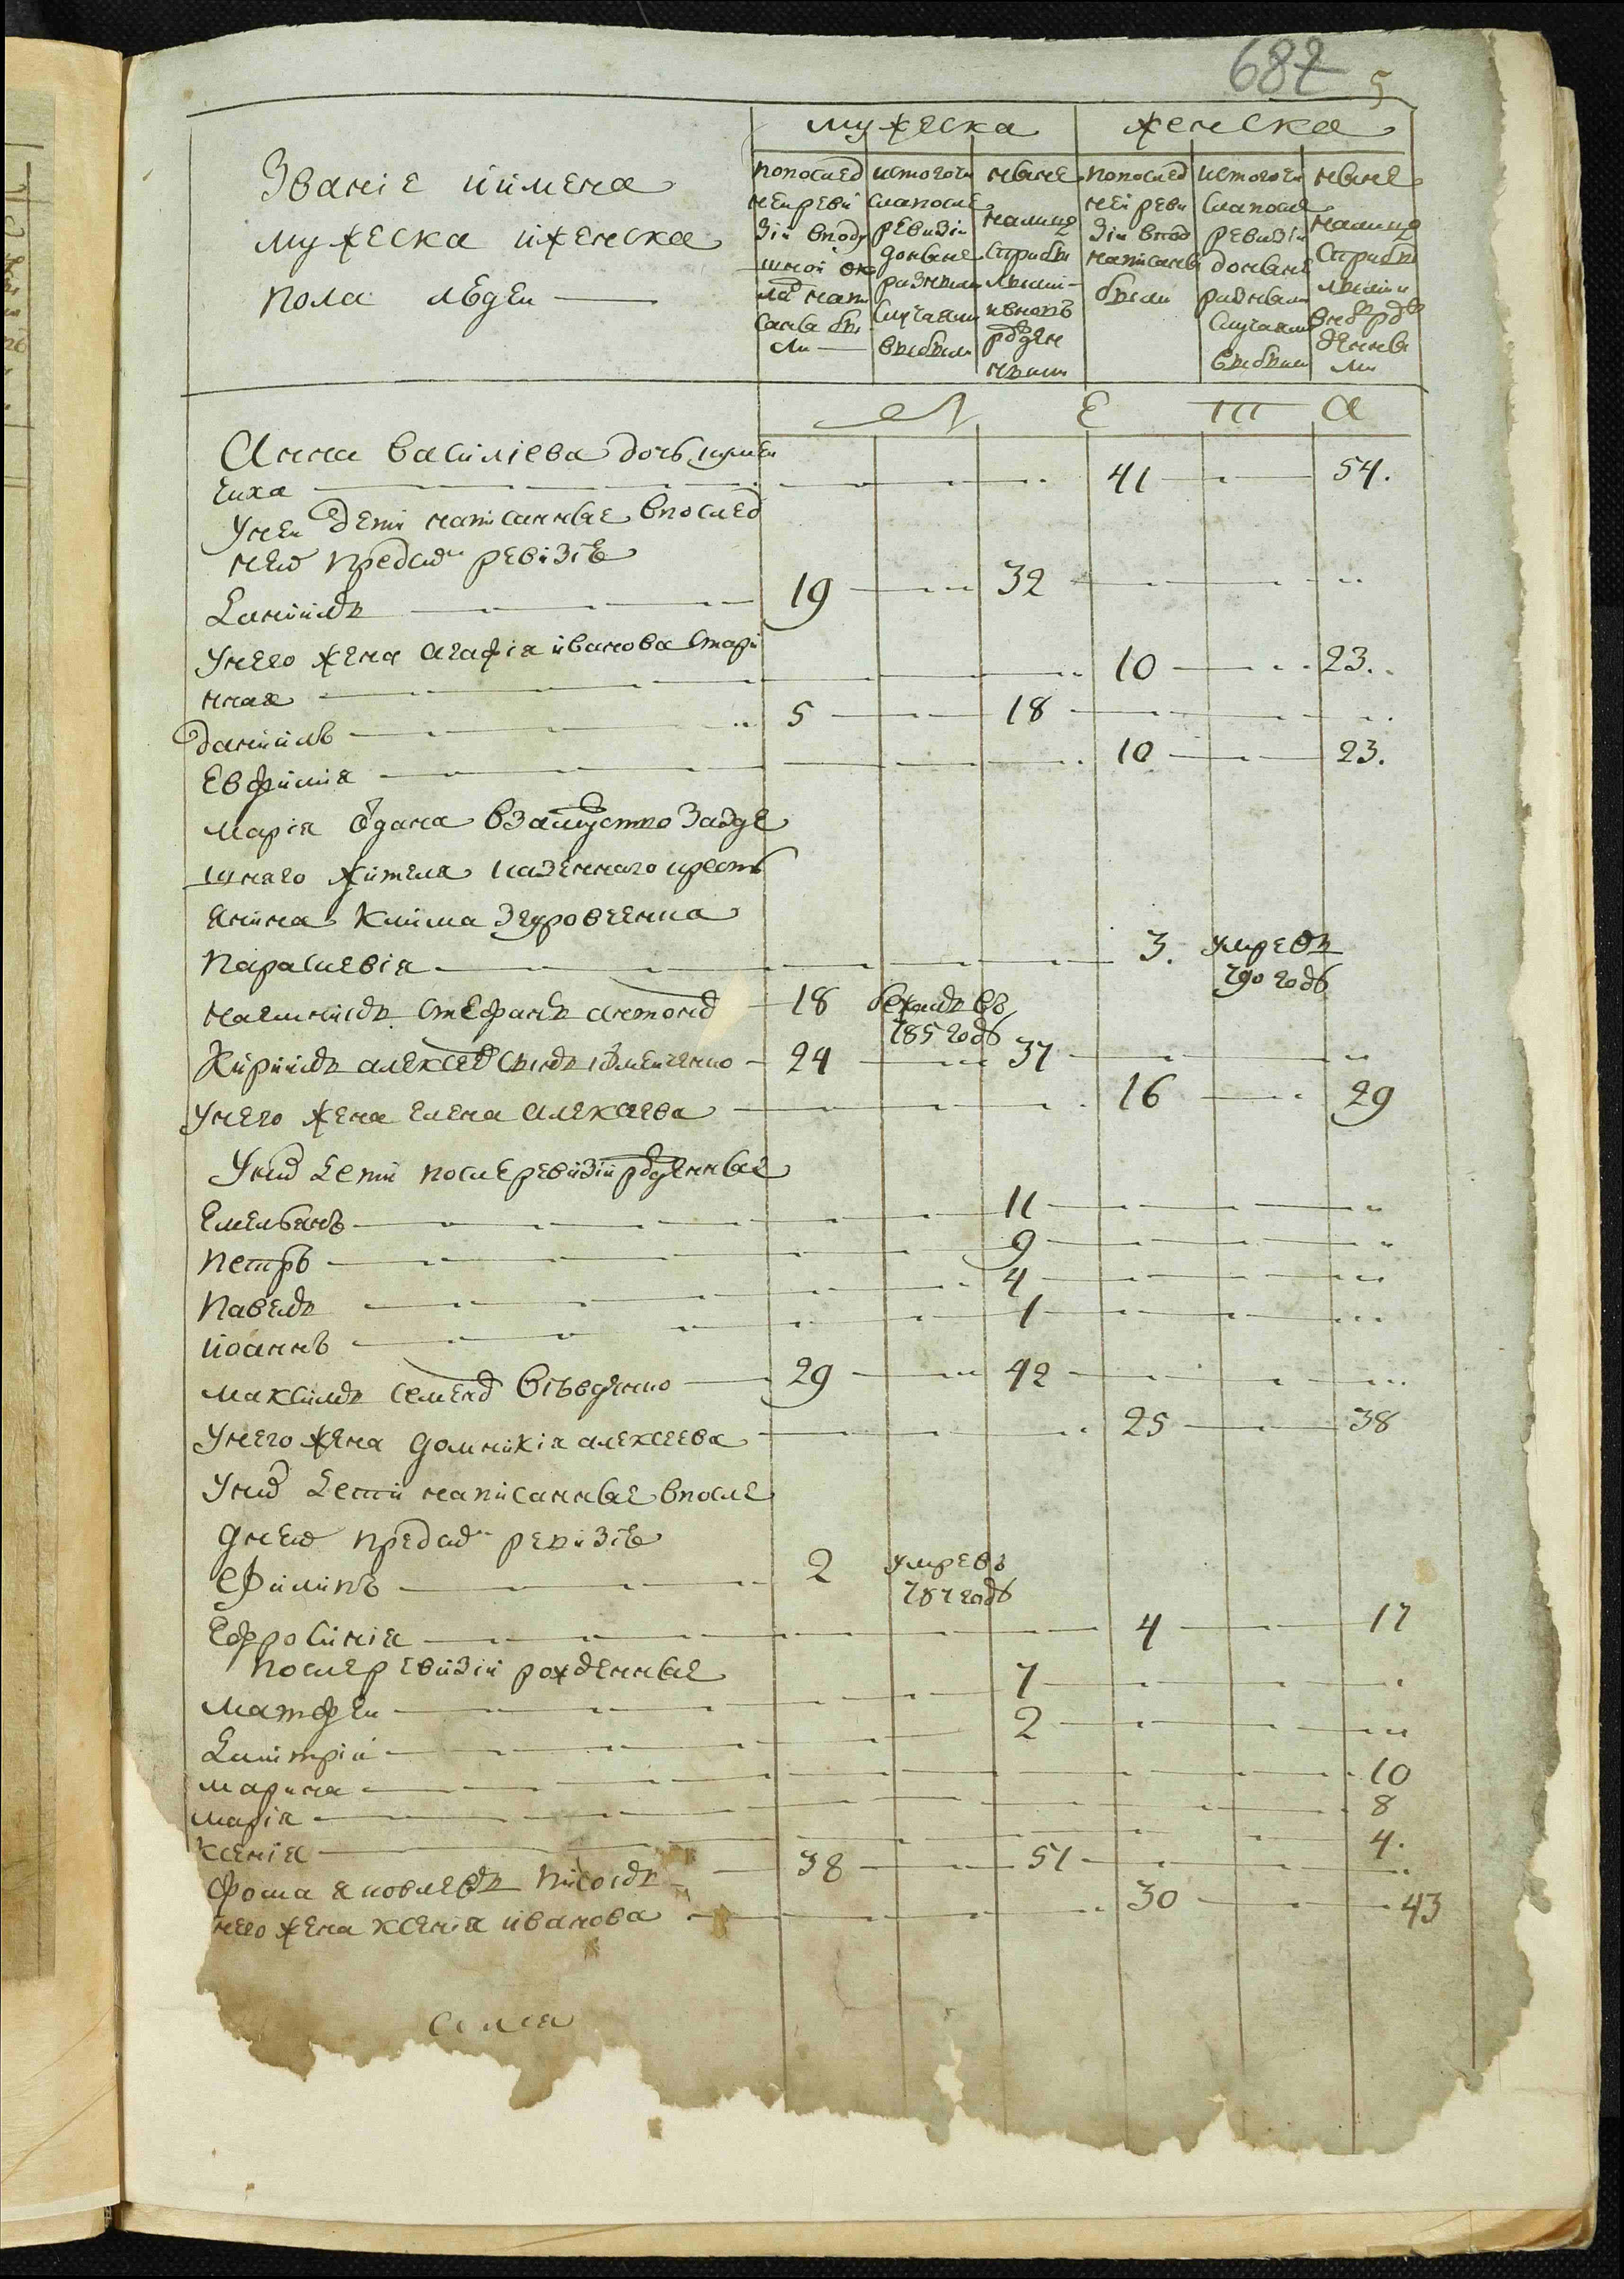 687 5
мужеска женска
Званіе иимена
мужеска иженска
пола людеи
попослед
неи реви
зіи вподу
шной ок
лад напи
саны бы
ли
истогочи
сла после
ревизіи
доныне
разными
случаями
выбыли
ныне
налицо
сприбы
лыми
ивновь
рожден
ными
попослед
неи реви
зіи впод
написаны
были
истогочи
сла после
ревизіи
доныне
разными
случаями
выбыли
ныне
налицо
сприбы
лыми и
вновь рож
денны
ми
Л Е Т А
Анна василіева дочь
еиха 41 54.
Унеи дети написанные впослед
неи пред сим ревизіѣ
Даніилъ 19 32
Унего жена агафіа иванова стари
нная 10 23.
даніилъ 5 18
Евфиміа 10 23.
Маріа отдана взамужство зазде
шнаго жителя казенного кресть
янина Клима
Параскевіа 3. умре въ
790 годѣ
стефанъ антонов 18 бежалъ въ
785 годѣ
Кирилъ алексеев сынъ 24 37
Унего жена елена алексеева 16 29
Уних дети после ревизіи рожденные
Емельянъ 11
Петръ 9
Павелъ 4
Иоаннъ 1
Максимъ семенов 29 42
Унего жена домникіа алексеева 25 38
Уних дети написанные впосле
днеи пред сим ревизіѣ
Филипъ 2 умре въ
787 годѣ
Ефросиніа 4 17
после ревизіи рожденные
Матфеи 7
Димитріи 2
Марина 10
Маріа 8
Ксеніа 4.
Фома яковлевъ 38 51
него жена ксеніа иванова 30 43